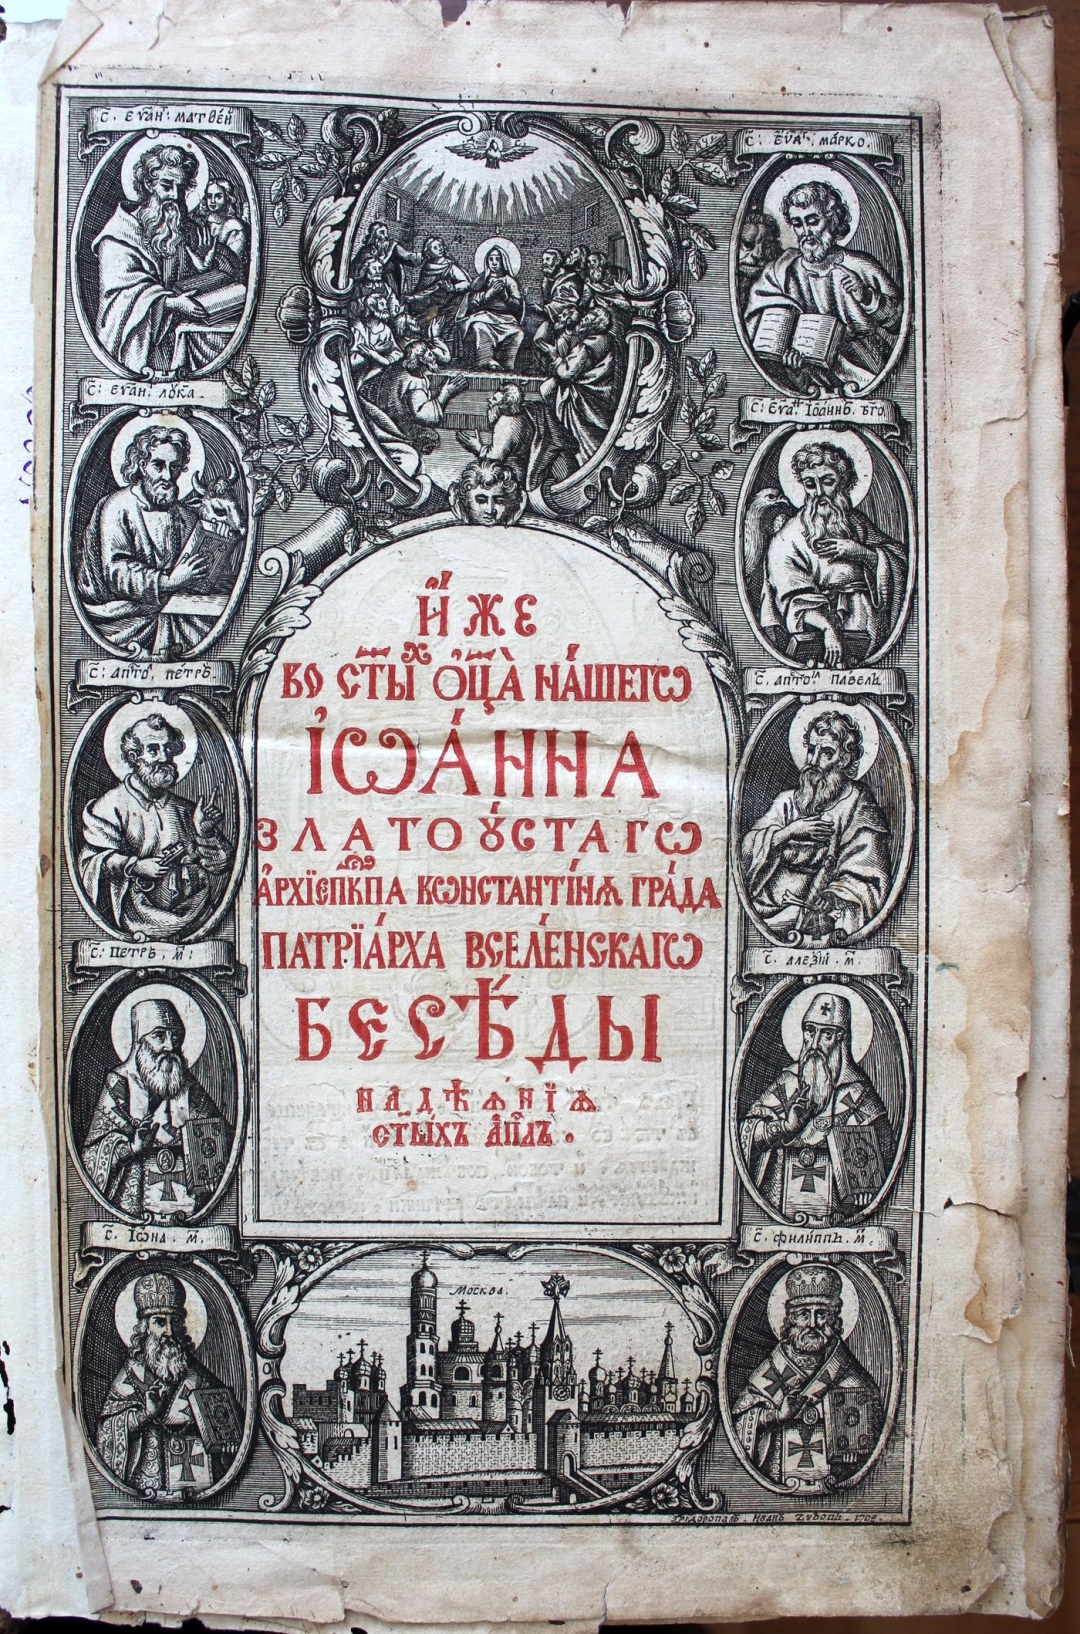 С. ЕѴАН: МАТѲЕЙ
С: ЕѴАГ. МАРКО.
С: ЕѴАН. ЛѸКА.
С: ЕѴАН ІѠАННЪ. БГО.
С: АПТО. ПЕТРЪ.
С. АПТОЛ ПАВЕЛЪ
С: ПЕТРЪ. М:
С. АЛЕѮІЙ. М.
С. ІѠНА. М.
С. ФИЛИППЪ. М.
И҆́ЖЕ
ВО СТЫ́Х Ѻ҆ЦА̀ НА́ШЕГѠ
І҆ѠА́ННА
ЗЛАТОꙊ́СТАГѠ
А҆РХІЕПКПА КѠНСТАНТІ́НѦ ГРА́ДА
ПАТРІА́РХА ВСЕЛЕ́НСКАГѠ
БЕСѢ́ДЫ
НА ДѢѦ́НІѦ
СТЫ́ХЪ А҆ПЛЪ.
МОСКВА.
ИВАНЪ ZУБОВЪ. 1709.